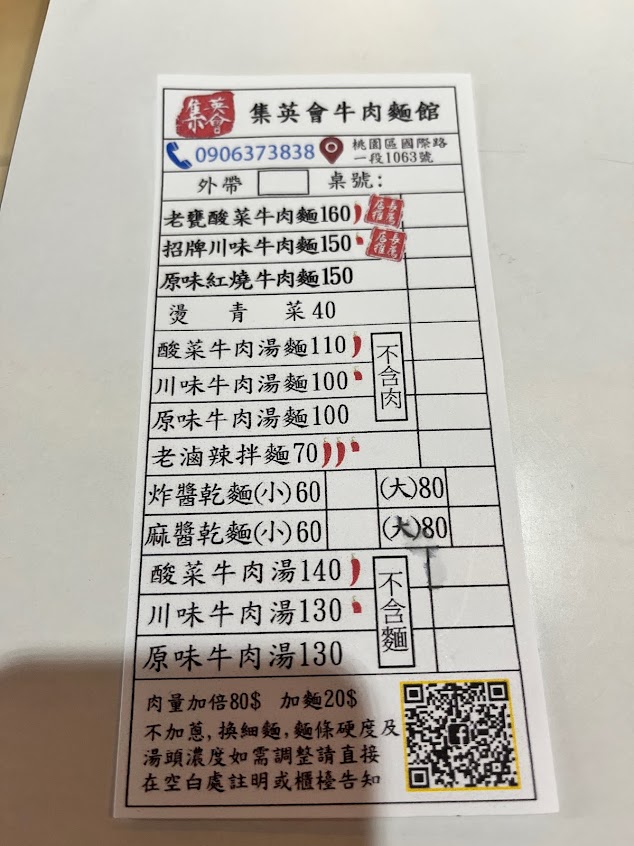 集英會
集英會牛肉麵館
0906373838
桃園區國際路
一段1063號
外帶 桌號:
老甕酸菜牛肉麵160 店長推薦
招牌川味牛肉麵150 店長推薦
原味紅燒牛肉麵150
燙青菜40
酸菜牛肉湯麵110
川味牛肉湯麵100
原味牛肉湯麵100
不含肉
老滷辣拌麵70
炸醬乾麵(小)60 (大)80
麻醬乾麵(小)60 (大)80
酸菜牛肉湯140
川味牛肉湯130
原味牛肉湯130
不含麵
肉量加倍80$ 加麵20$
不加蔥,換細麵,麵條硬度及
湯頭濃度如需調整請直接
在空白處註明或櫃檯告知